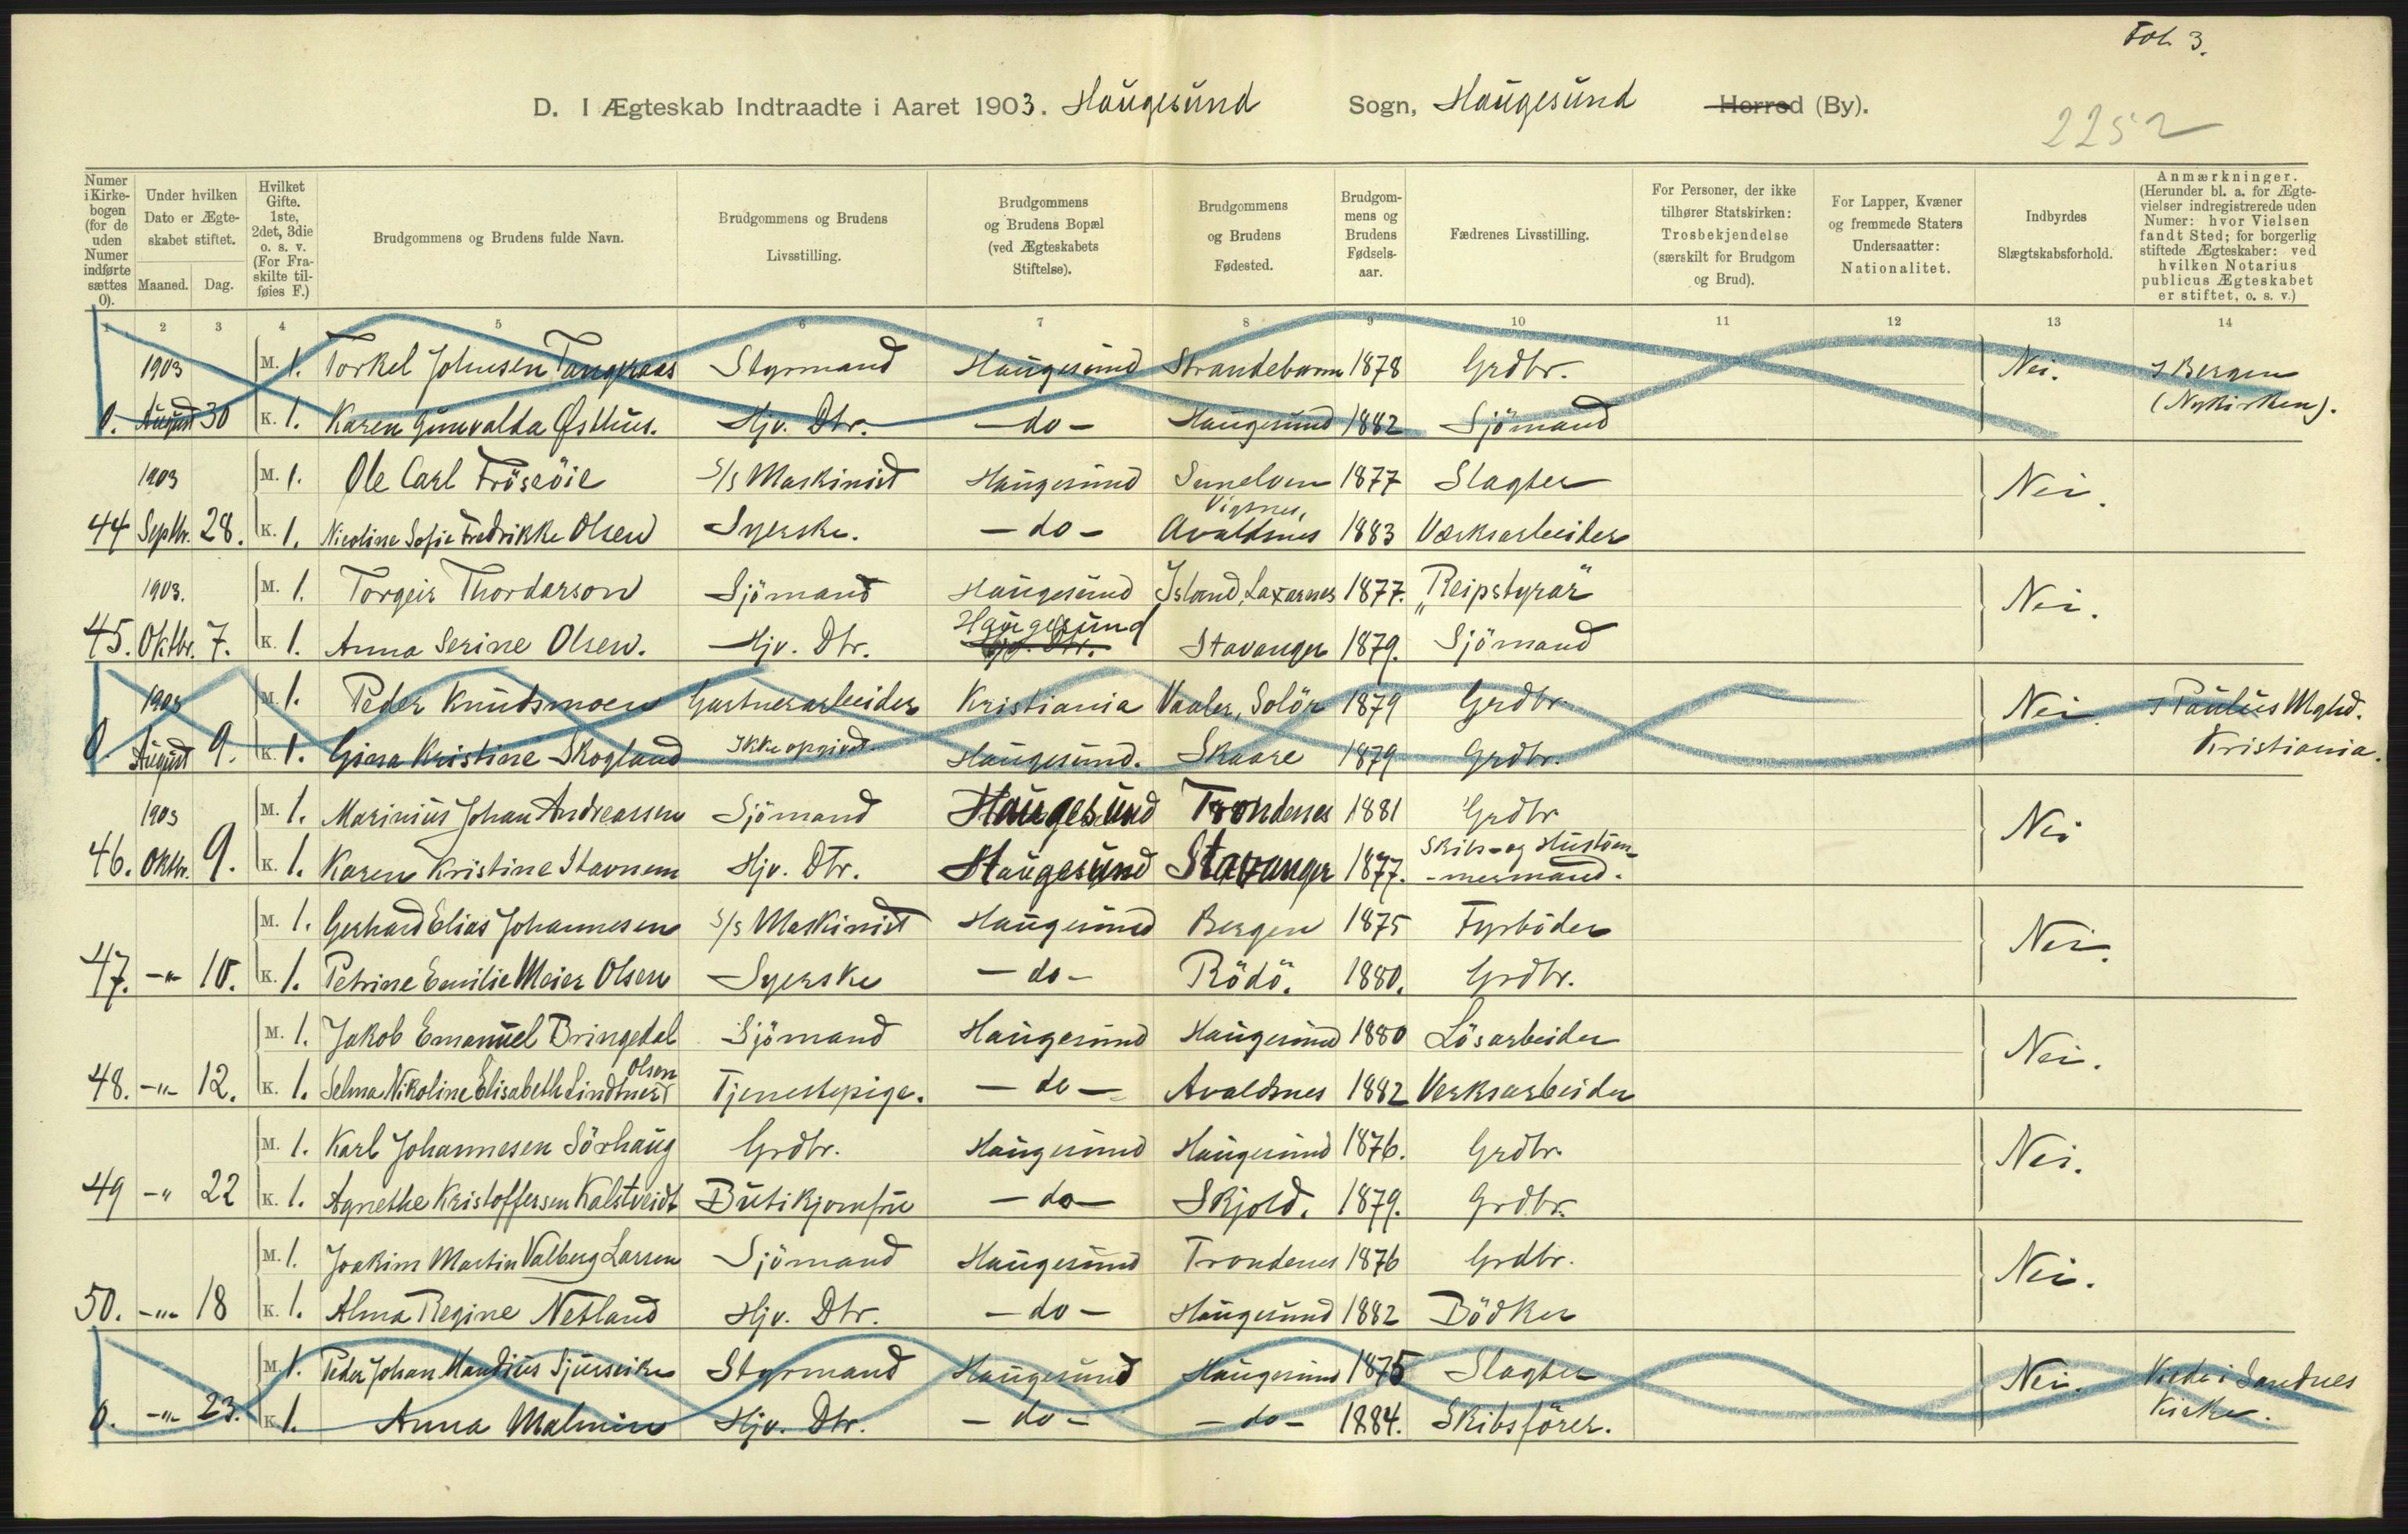 Fol. 3.
D. I Ægteskab Indtraadte i Aaret 1903. Haugesund Sogn, Haugesund Herred (By).
2252
Numer i Kirkebogen (for de uden Numer indførte sættes 0).
Under hvilken Dato er Ægteskabet stiftet.
Maaned. Dag.
Hvilket Gifte. 1ste, 2det, 3die o. s. v. (For Fraskilte tilføies F.)
Brudgommens og Brudens fulde Navn.
Brudgommens og Brudens Livsstilling.
Brudgommens og Brudens Bopæl (ved Ægteskabets Stiftelse).
Brudgommens og Brudens Fødested.
Brudgommens og Brudens Fødselsaar.
Fædrenes Livsstilling.
For Personer, der ikke tilhører Statskirken: Trosbekjendelse (særskilt for Brudgom og Brud).
For Lapper, Kvæner og fremmede Staters Undersaatter: Nationalitet.
Indbyrdes Slægtskabsforhold.
Anmærkninger. (Herunder bl. a. for Ægtevielser indregistrerede uden Numer: hvor Vielsen fandt Sted; for borgerlig stiftede Ægteskaber: ved hvilken Notarius publicus Ægteskabet er stiftet, o. s. v.)
1 2 3 4 5 6 7 8 9 10 11 12 13 14
1903 M. 1. Torkel Johnsen Styrmand Haugesund Strandebarm 1878 Grdbr. Nei. I Bergen
0. August 30 K. 1. Karen Gunvalda Østhus. Hjv. Dtr. - do - Haugesund 1882 Sjömand (Nykirken).
1903 M. 1. Ole Carl Fröseöie S/s Maskinist Haugesund Sunelven 1877 Slagter Nei.
44 Septbr. 28. K. 1. Nicoline Sofie Fredrikke Olsen Syerske. - do - Vigsnes, Avaldsnes 1883 Værksarbeider
1903. M. 1. Torgeir Thordarson Sjömand Haugesund Island, Laxarnes 1877. "Reipstyrar" Nei.
45. Oktbr. 7. K. 1. Anna Serine Olsen. Hjv. Dtr. Haugesund Hjv. Dtr. Stavanger 1879. Sjömand
1903 M. 1. Peder Knudsmoen Gartnerarbeider Kristiania Vaaler, Solör 1879 Grdbr. Nei I Paulus Mghd.
0. August 9. K. 1. Gina Kristine Skogland Ikke opgivet. Haugesund. Skaare 1879 Grdbr. Kristiania.
1903 M. 1. Marinius Johan Andreassen Sjömand Haugesund Trondenes 1881 Grdbr Nei
46. Oktbr. 9. K. 1. Karen Kristine Stavnem Hjv. Dtr. Haugesund Stavanger 1877. Skibs- og Hustöm-
-mermand.
M. 1. Gerhard Elias Johannesen S/s Maskinist Haugesund Bergen 1875 Fyrböder Nei.
47. -"- 10. K. 1. Petrine Emilie Meier Olsen Syerske - do - Rödö. 1880. Grdbr.
M. 1. Jakob Emanuel Bringedal Sjömand Haugesund Haugesund 1880 Lösarbeider Nei.
48. -"- 12. K. 1. Selma Nikoline Elisabeth Lindtner Olsen Tjenestepige. - do - Avaldsnes 1882 Verksarbeider
M. 1. Karl Johannesen Sörhaug Grdbr. Haugesund Haugesund 1876. Grdbr. Nei.
49 -"- 22 K. 1. Agnethe Kristoffersen Kalstveidt Butikjomfru - do - Skjold. 1879. Grdbr.
M. 1. Joakim Martin Valberg Larsen Sjömand Haugesund Trondenes 1876 Grdbr. Nei.
50. -"- 18 K. 1. Alma Regine Netland Hjv. Dtr. - do - Haugesund 1882 Bödker
M. 1. Peder Johan Styrmand Haugesund Haugesund 1875 Slagter Nei. Viede i Sandnes
0. -"- 23. K. 1. Anna Malmin Hjv. Dtr. - do - - do - 1884. Skibsförer. Kirke.